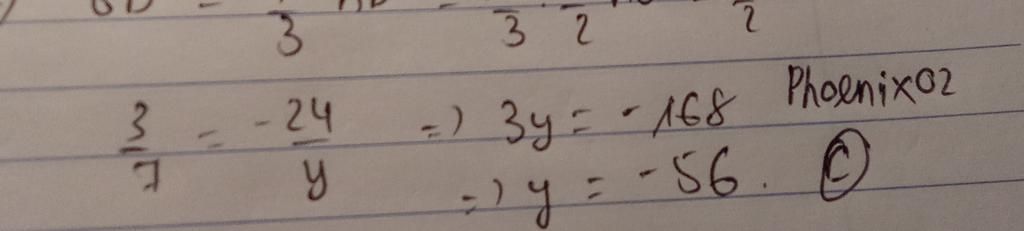 3 3 2 2
3/7 = -24/y => 3y = -168 Phoenix02
=> y = -56. C